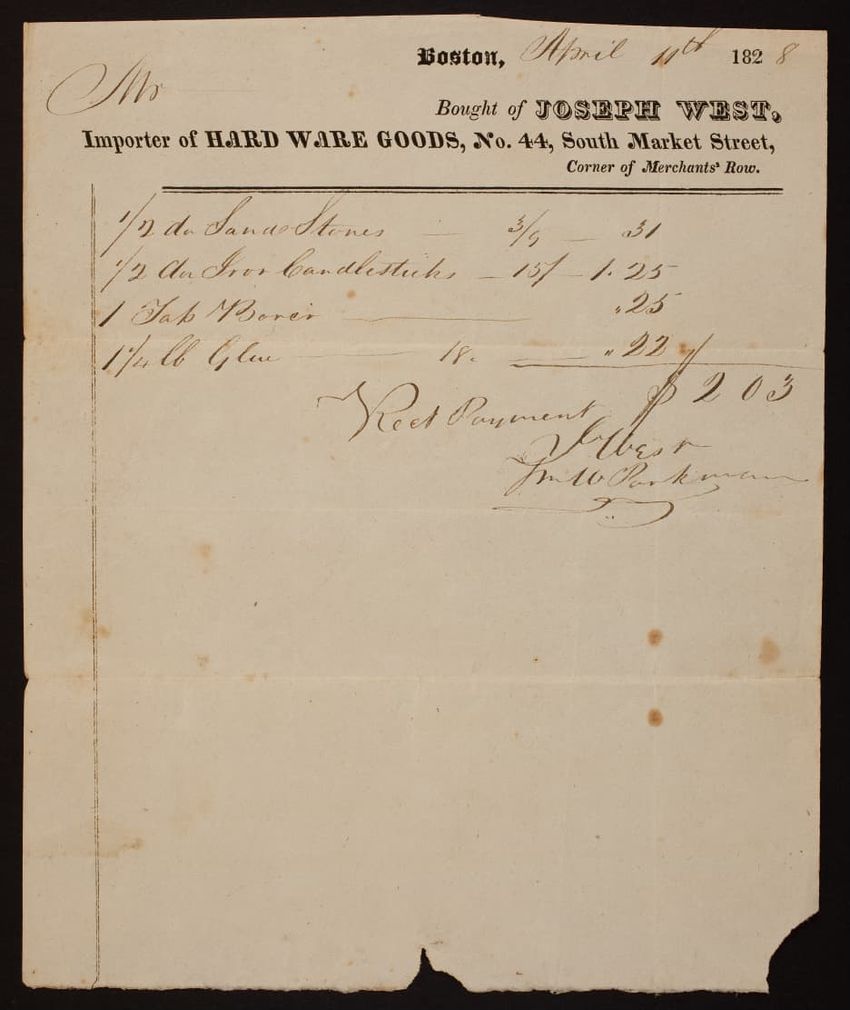 Boston, April 11th 1828
Mr
Bought of JOSEPH WEST,
Importer of HARD WARE GOODS, No. 44, South Market Street,
Corner of Merchants' Row.
1/2 do Sand Stones — 3/9 — 31
1/2 do Iron Candlesticks — 15/ — 1.25
1 Tap Borer — "25
1 1/4 lb Glue — 18. — "22
$203
Recd Payment
J West
W Parkman